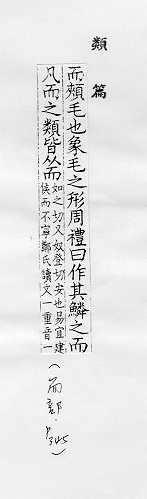 類篇
而頰毛也象毛之形周禮曰作其鱗之而
凡而之類皆从而
如之切又奴登切安也易宜建
侯而不寧鄭氏讀文一重音一
(而部·P.345)